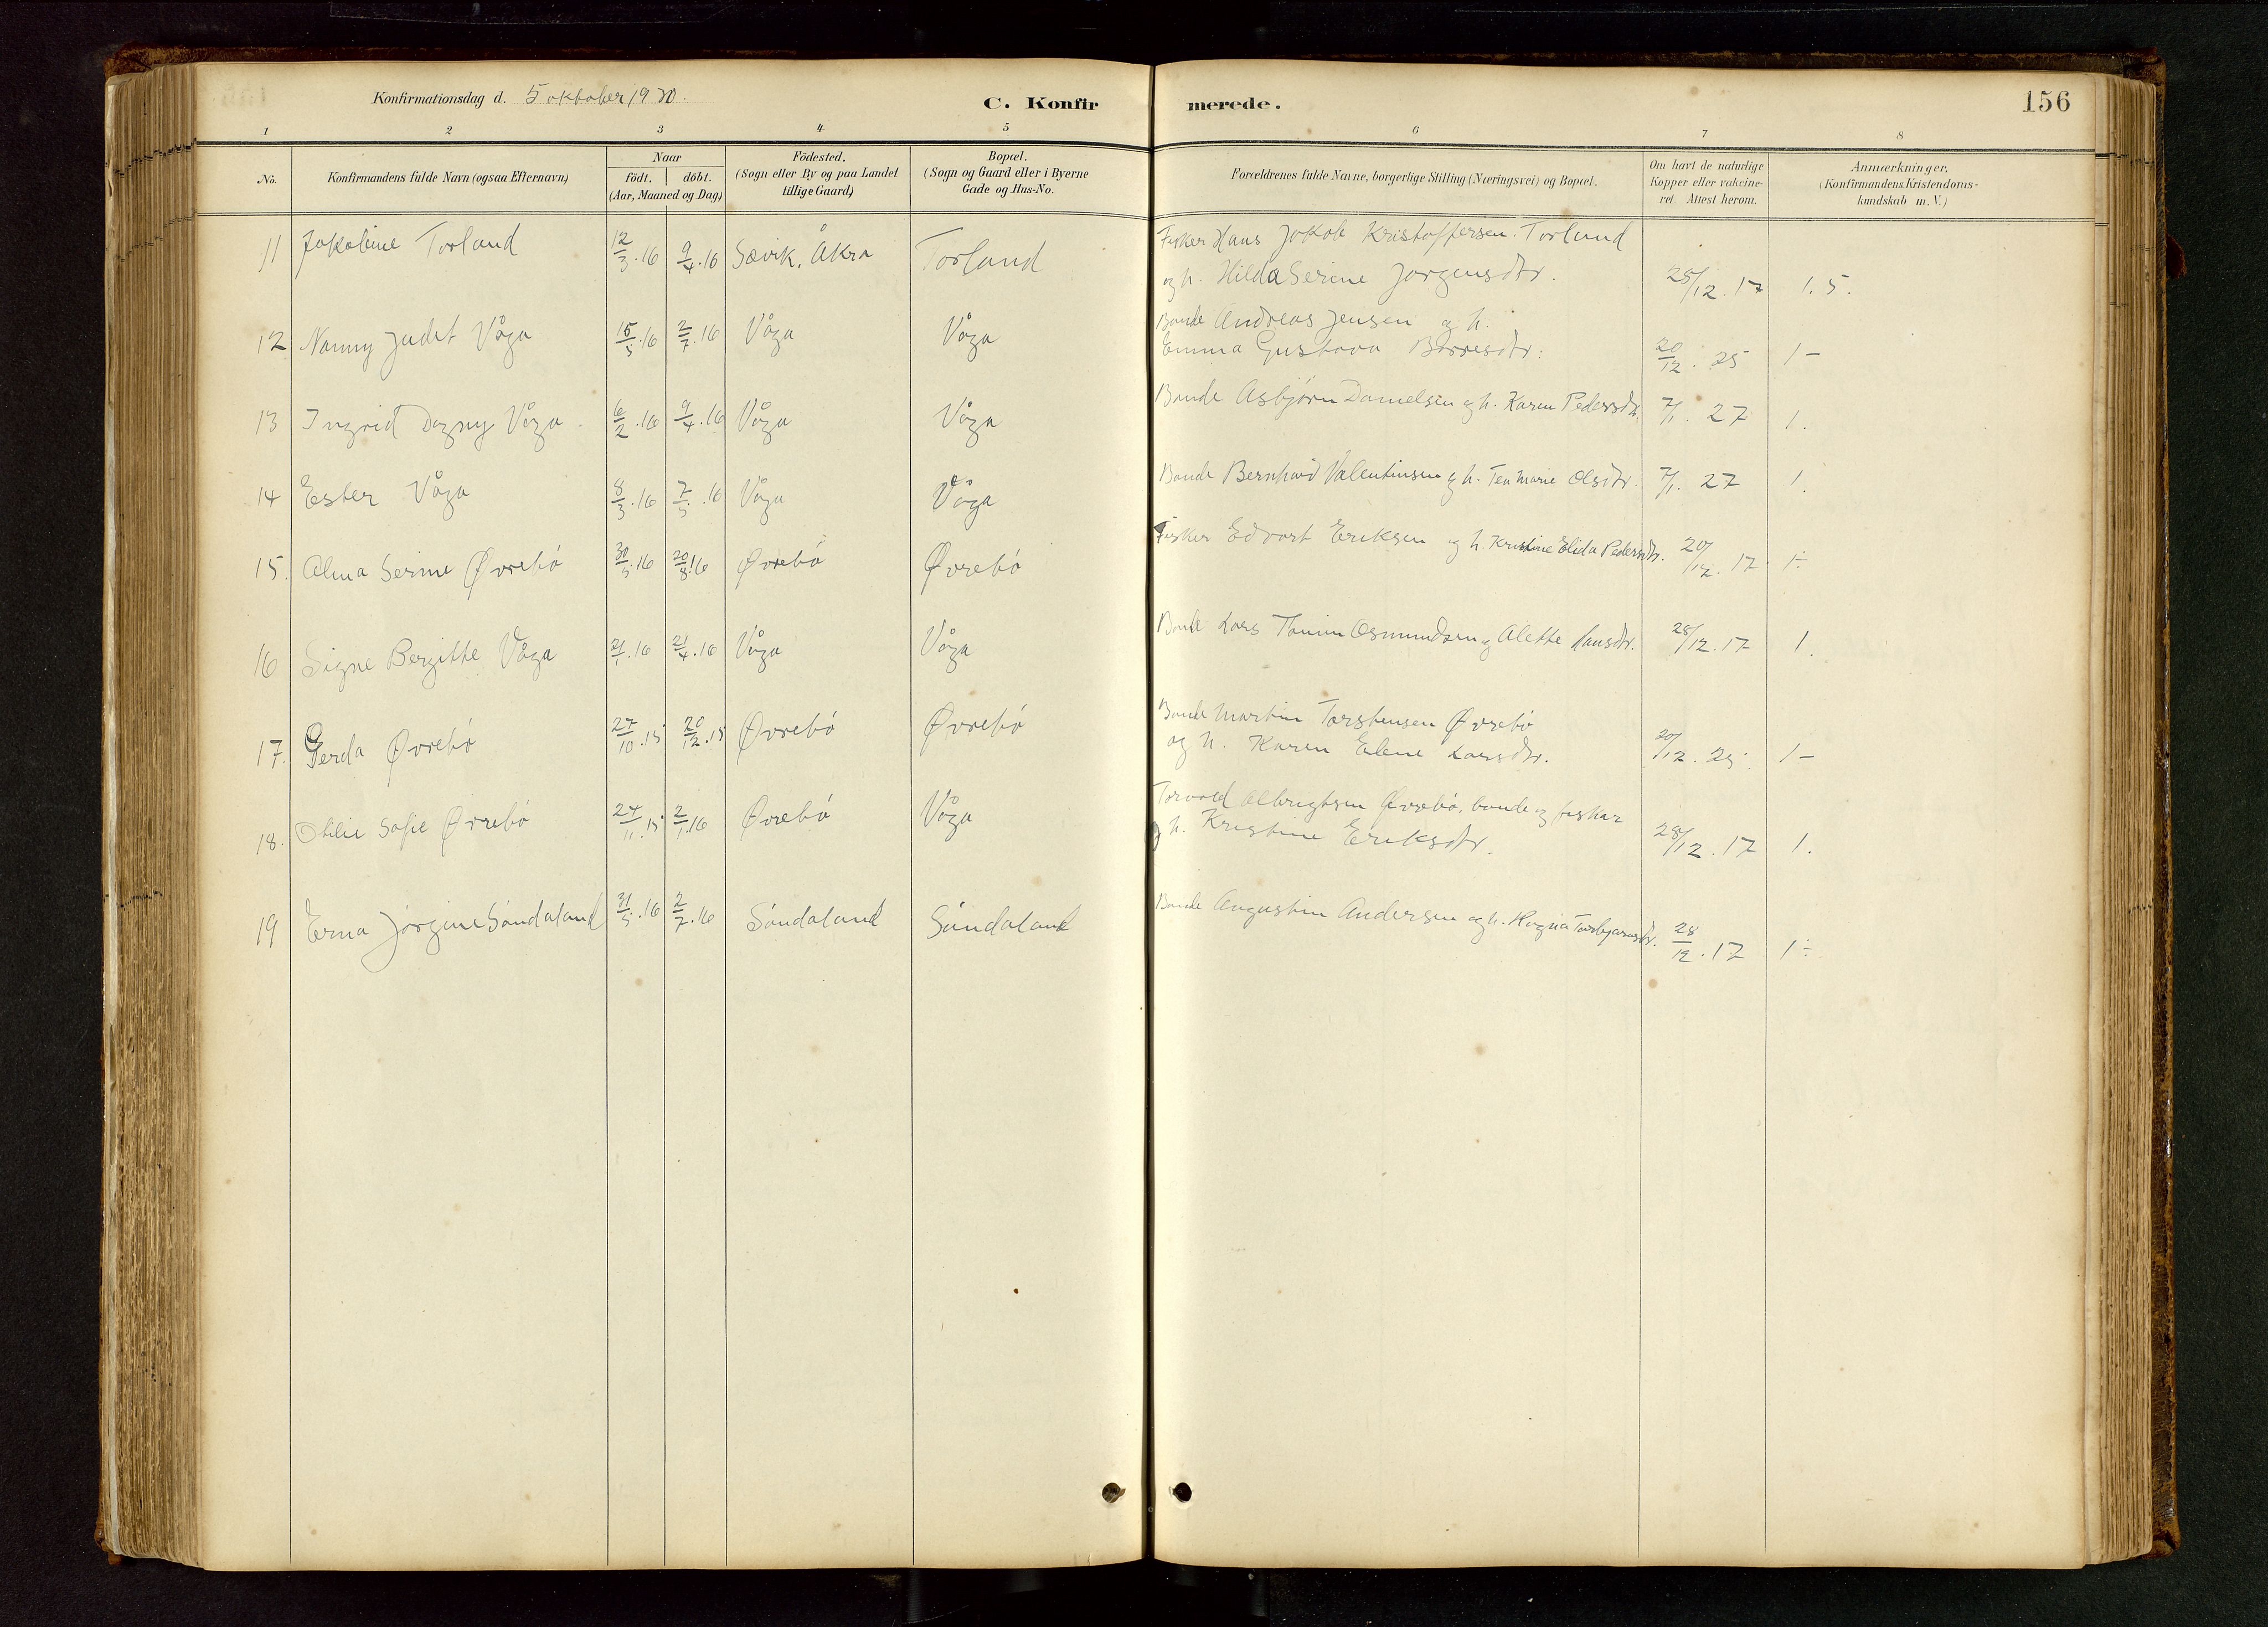 Konfirmationsdag d. 5 oktober 1930.
C. Konfirmerede.
156
1 2 3 4 5 6 7 8
No.
Konfirmandens fulde Navn (ogsaa Efternavn)
Naar
födt. döbt.
(Aar, Maaned og Dag)
Födested.
(Sogn eller By og paa Landet
tillige Gaard)
Bopæl.
(Sogn og Gaard eller i Byerne
Gade og Hus-No.
Forældrenes fulde Navne, borgerlige Stilling (Næringsvei) og Bopæl.
Om havt de naturlige
Kopper eller vakcine-
ret Attest herom.
Anmærkninger,
(Konfirmandens Kristendoms-
kundskab m. V.)
Fisker Hans Jakob Kristoffersen Torland
11 Jakobine Torland 12/3.16 9/4.16 Sævik, Åkra Torland og h. Hilda Serine Jørgensdtr. 28/12.17 1.5.
Bonde Andreas Jensen og h.
12 Nanny Judit Våga 15/5.16 2/7.16 Våga Våga Emma Gustava Børresdtr. 20/12.25 1-
13 Ingrid Dagny Våga 6/2.16 9/4.16 Våga Våga Bonde Asbjørn Danielsen og h. Karen Pedersdtr. 7/1.27 1.
14 Ester Våga 8/3.16 7/5.16 Våga Våga Bonde Bernhard Valentinsen og h. Tea Marie Olsdtr. 7/1.27 1.
15. Alma Serine Øvrebø 30/5.16 20/8.16 Øvrebø Øvrebø Fisker Edvart Eriksen og h. Kristine Elida Pedersdtr. 20/12.17 1÷
16 Signe Bergitte Våga 21/1.16 24/4.16 Våga Våga Bonde Lars Tomin Osmundsen og Alette Hansdtr. 28/12.17 1.
Bonde Martin Torstensen Øvrebø
17. Gerda Øvrebø 27/10.15 20/12.15 Øvrebø Øvrebø og h. Karen Elene Larsdtr. 20/12.25. 1-
Torvald Albrigtsen Øvrebø, bonde og fisker
18. Otilie Sofie Øvrebø 24/11.15 2/1.16 Øvrebø Våga og h. Kristine Eriksdtr. 28/12.17 1.
19 Erna Jørgine Sandaland 31/5.16 2/7.16 Såndaland Såndaland Bonde Augustin Andersen og h. Torbjørnsdtr. 28/12.17 1÷